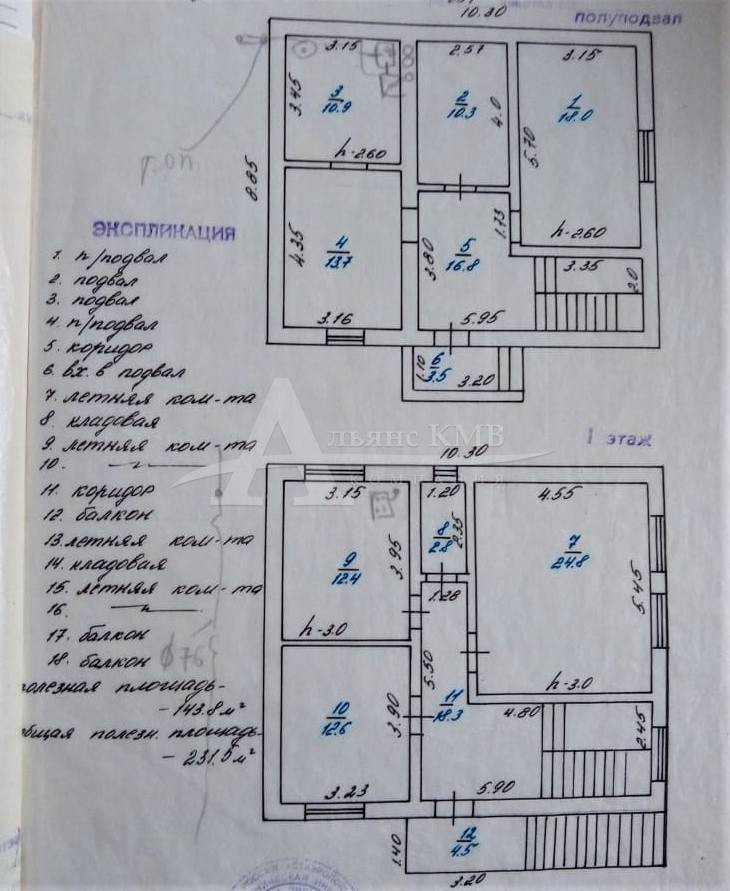 10.30
полуподвал
3.15
2.57
3.15
3.45
3
10.9
2
10.3
4.0
1
18.0
5.70
h-2.60
h-2.60
8.85
г.оп.
ЭКСПЛИКАЦИЯ
1. п/подвал
2. подвал
3. подвал
4. п/подвал
5. коридор
6. вх. в подвал
7. летняя ком-та
8. кладовая
9. летняя ком-та
10. —〃—
11. коридор
12. балкон
13. летняя ком-та
14. кладовая
15. летняя ком-та
16. —〃—
17. балкон
18. балкон
ф76
полезная площадь-
- 143.8 м²
общая полезн. площадь-
- 231.5 м²
4.35
4
13.7
3.16
3.80
5
16.8
1.73
3.35
2.0
5.95
1.10
6
3.5
3.20
Альянс КМВ
КОМПАНИЯ
I этаж
10.30
3.15
1.20
4.55
9
12.4
3.95
8
2.8
2.35
7
24.8
5.45
1.28
h-3.0
h-3.0
5.50
10
12.6
3.90
11
18.3
4.80
2.45
3.23
5.90
1.40
12
4.5
3.20